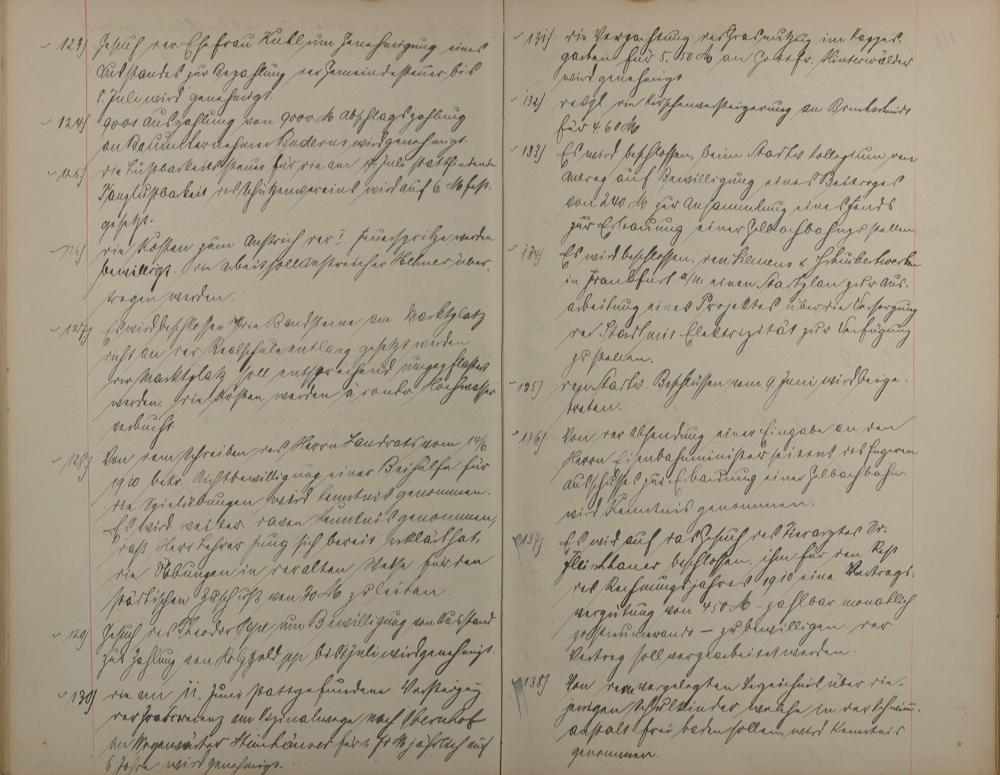 123) Gesuch der Ehefrau Kuhl um Genehmigung eines
Ausstandes zur Bezahlung der Gemeindesteuer bis
1. Juli wird genehmigt.
124) Auszahlung von 9000 M Abschlagszahlung
an Bauunternehmer Buderus wird genehmigt.
125) die Lustbarkeitssteuer für die am Juli stattfindende
Tanzlustbarkeit des Schützenvereins wird auf 6 M fest-
gesetzt.
126) die Kosten zum Anstrich der I. Feuerspritze werden
bewilligt. Die Arbeit soll Anstreicher über-
tragen werden.
127) Es wird beschlossen die Bandsteine am Marktplatz
dicht an der Realschule entlang gesetzt werden
der Marktplatz soll entsprechend umgepflastert
werden. die Kosten werden à conto Hochwasser
verbucht
128) Von dem Schreiben des Herrn Landrats vom 14/6
1910 betr. Nichtbewilligung einer Beihülfe für
die Spielübungen wird Kenntnis genommen.
Es wird weiter davon Kenntnis genommen,
daß Herr Lehrer Jung sich bereit erklärt hat,
die Übungen in der alten Weise für den
städtischen Zuschuß von 20 M zu leiten.
129) Gesuch des Theodor um Bewilligung von Ausstand
zur Zahlung von Holzgeld pp bis 1 Juli wird genehmigt.
130) die am 11. Juni stattgefundene Versteigerung
der am Vizinalwege nach Obernhof
an Wegewärter Steinhäuser für M jährlich auf
6 Jahre wird genehmigt.
131) die Verpachtung der Grasnutzung im Kappes-
garten für 5,50 M an Gottfr. Hinterwälder
wird genehmigt
132) desgl. die Kirschenversteigerung an
für 4.60 M
133) Es wird beschlossen, beim Stadtv. Kollegium den
Antrag auf Bewilligung eines Beitrages
von 240 M zur Ansammlung eines Fonds
zur Erbauung einer Gelbachbahn zu stellen
134) Es wird beschlossen, den Siemens & Schuckertwerken
in Frankfurt a/M einen Stadtplan zur Aus-
arbeitung eines Projektes über die Versorgung
der Stadt mit Elektrizität zur Verfügung
zu stellen.
135) den Stadtv. Beschlüssen vom 9. Juni wird beige-
treten.
136) Von der Absendung einer Eingabe an den
Herrn Eisenbahnminister seitens des engeren
Ausschusses zur Erbauung einer Gelbachbahn
wird Kenntnis genommen.
137) Es wird auf das Gesuch des Tierarztes Dr.
beschlossen, ihm für den Rest
des Rechnungsjahres 1910 eine Vertrags-
vergütung von 450 M – zahlbar monatlich
postnumerando – zu bewilligen der
Vertrag soll vorgearbeitet werden.
138) Von dem vorgelegten Verzeichnis über die-
jenigen Schulkinder welche in der Schwimm-
anstalt frei baden sollen, wird Kenntnis
genommen.